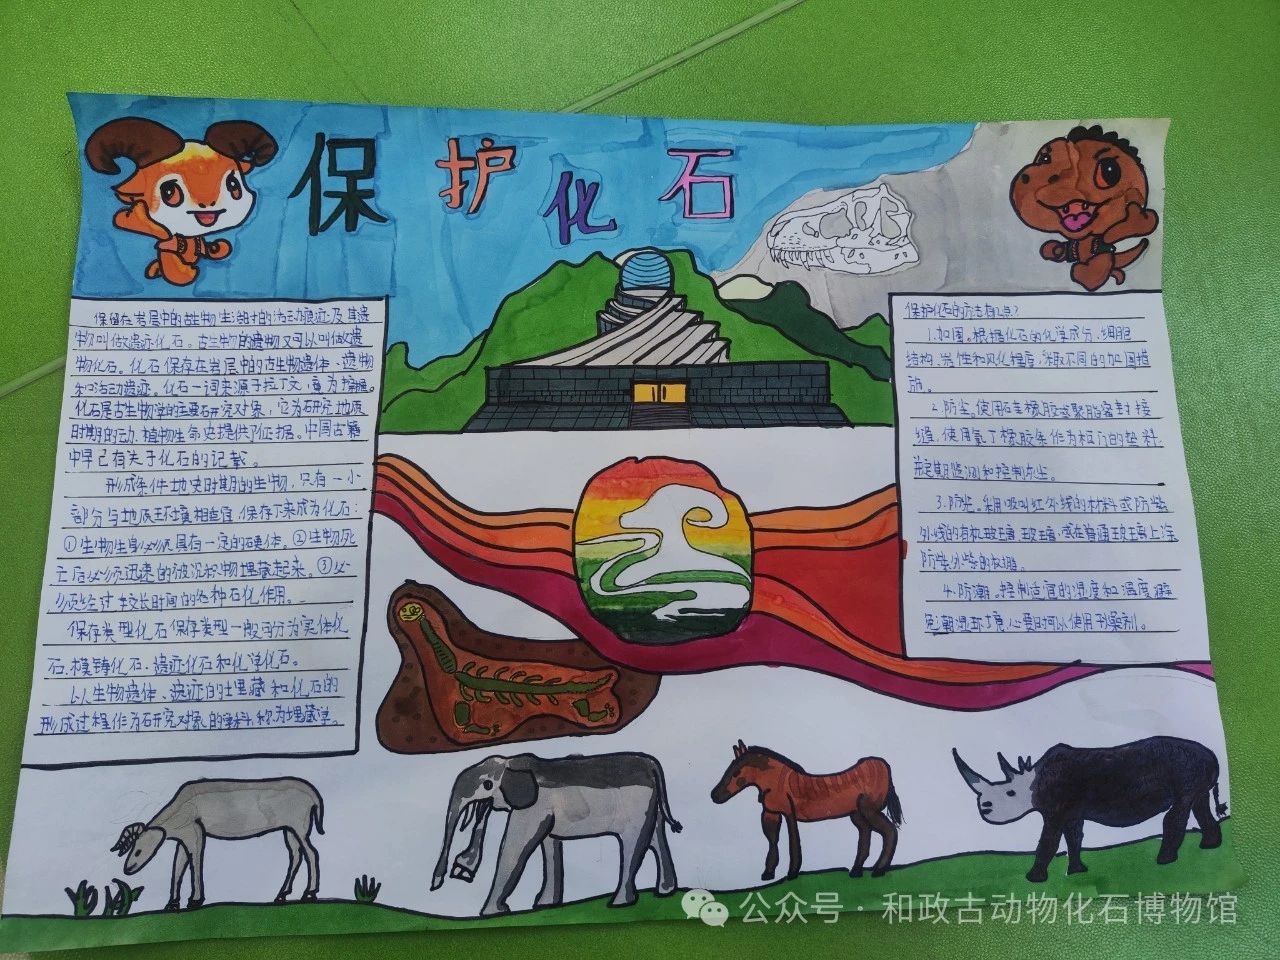 保护化石
保留在岩层中的古生物生活时的活动痕迹及其遗
物叫做遗迹化石。古生物的遗物又可以叫做遗
物化石。化石保存在岩层中的古生物遗体、遗物
和活动遗迹。化石一词来源于拉丁文,意为挖掘。
化石是古生物学的主要研究对象,它为研究地质
时期的动、植物生命史提供了证据。中国古籍
中早已有关于化石的记载。
形成条件地史时期的生物,只有一小
部分与地质环境相适应,保存下来成为化石:
①生物生身必须具有一定的硬体。②生物死
亡后必须迅速的被沉积物埋藏起来。③必
须经过较长时间的各种石化作用。
保存类型化石保存类型一般可分为实体化
石、模铸化石、遗迹化石和化学化石。
以生物遗体、遗迹的埋藏和化石的
形成过程作为研究对象的学科,称为埋藏学。
保护化石的方法有4点?
1.加固。根据化石的化学成分、细胞
结构、岩性和风化程度,采取不同的加固措
施。
2.防尘。使用硅橡胶或聚脂密封接
缝,使用氯丁橡胶条作为柜门的垫料
并定期监测和控制灰尘。
3.防光。利用吸收红外线的材料或防紫
外线的有机玻璃、玻璃,或在普通玻璃上涂
防紫外線的
4.防潮。控制适宜的湿度和温度,避
免潮湿环境,必要时可以使用干燥剂。
公众号·和政古动物化石博物馆